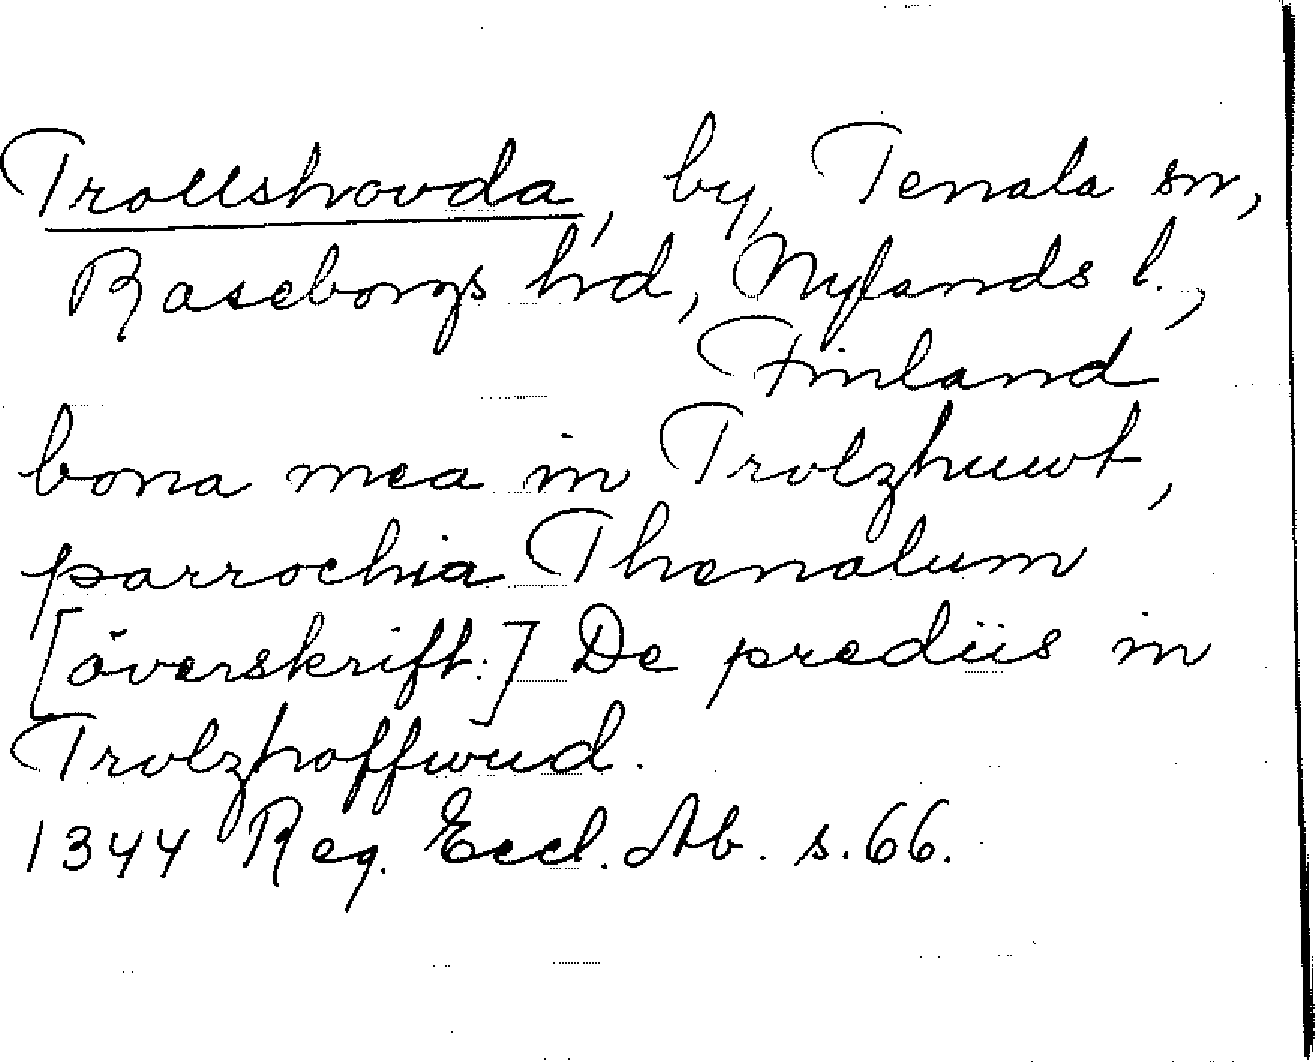 Trollshovda, by, Tenala sn,
Raseborgs hd, Nylands l.,
Finland
bona mea in Trolzhuwt,
parrochia Thenalum
[överskrift:] De prediis in
Trolzhoffwud.
1344 Reg. Eccl. Ab. s. 66.